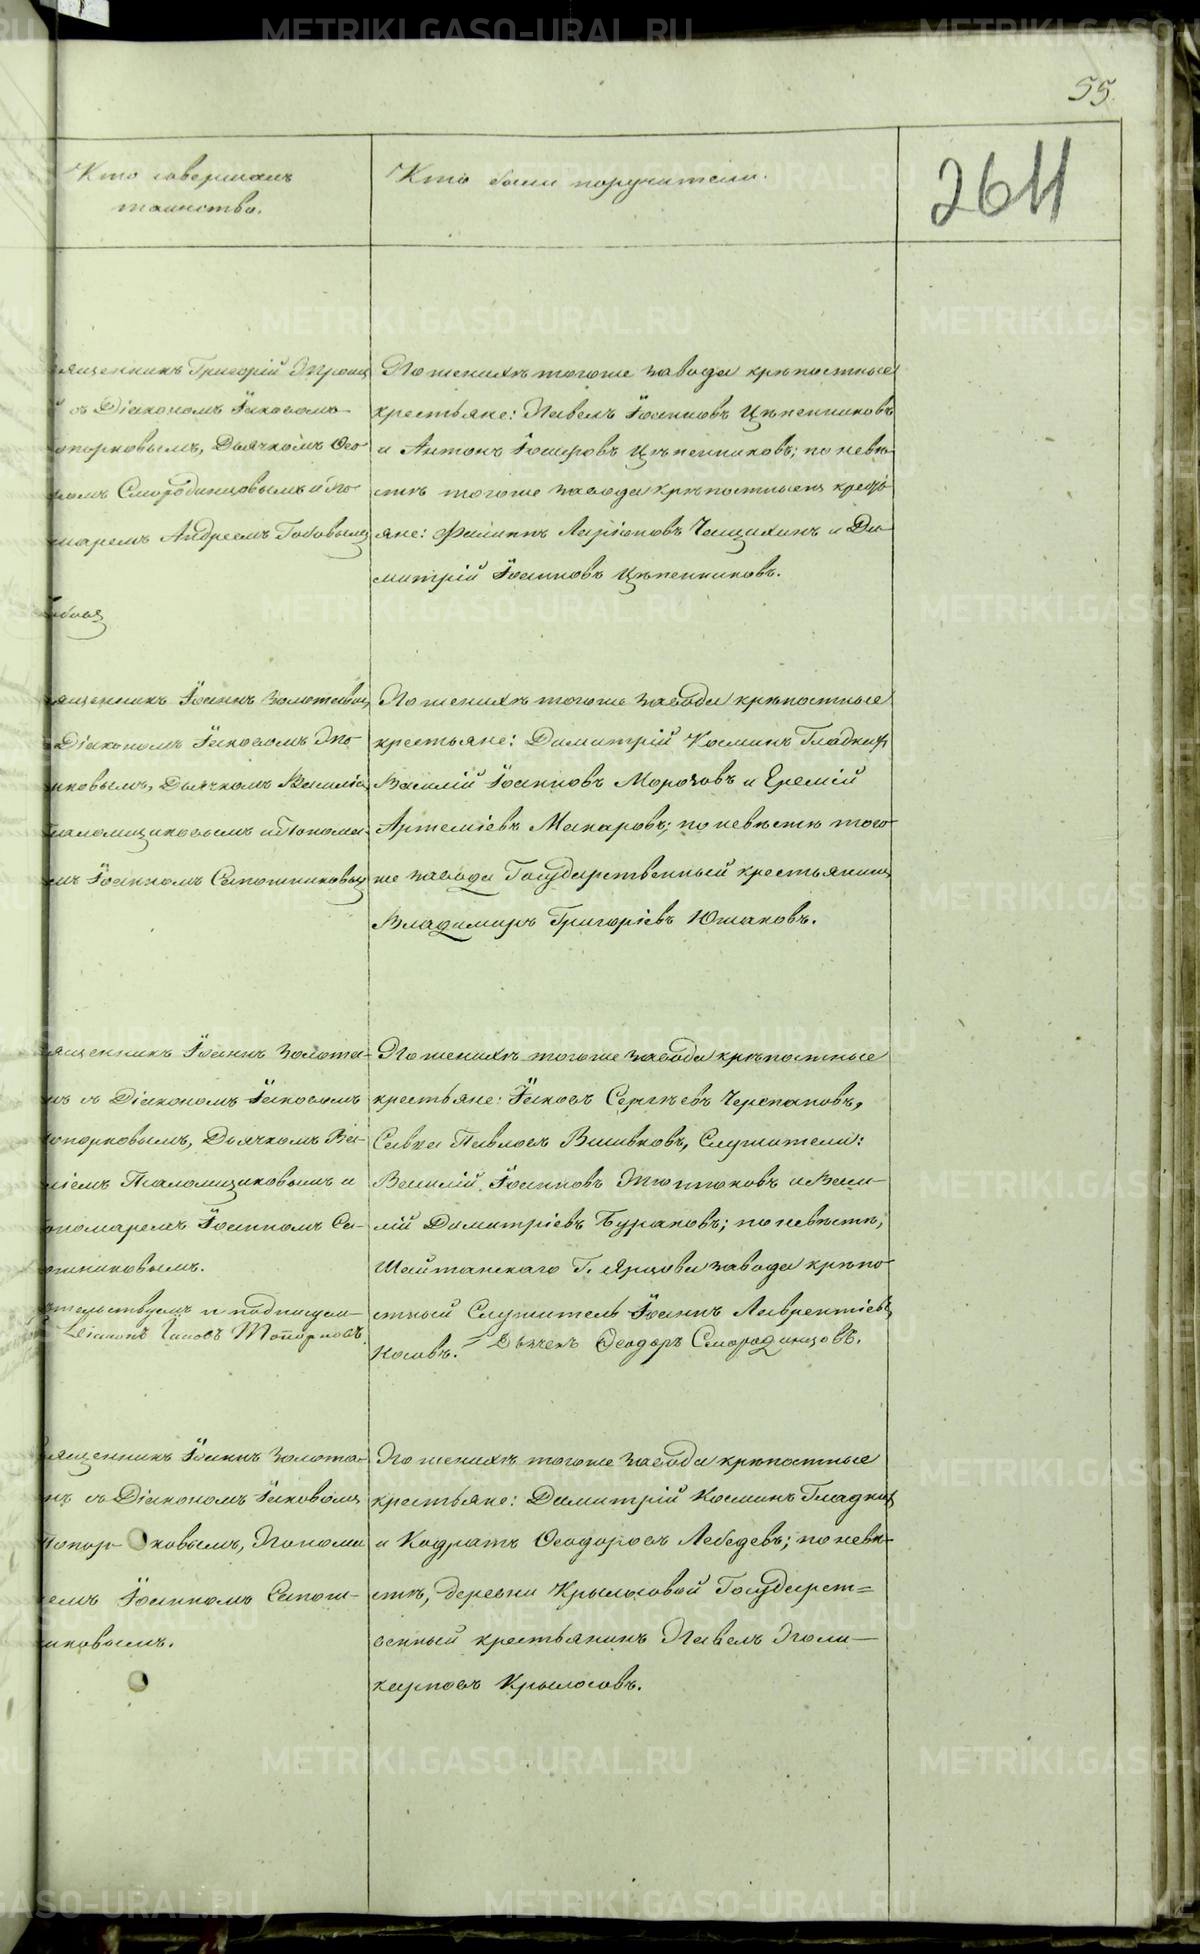 55.
Кто совершалъ
таинство.
Кто были поручители.
2611
ященникъ Григорій
съ Діакономъ Іаковомъ
опорковымъ, Дьячкомъ Ѳео
ромъ Смородинцовымъ и По
маремъ Андреемъ
По женихѣ тогоже завода крѣпостные
крестьяне: Павелъ Іоанновъ Цѣпенниковъ
и Антонъ Іосифовъ Цѣпенниковъ; по невѣ
стѣ тогоже завода крѣпостные кресть
яне: Филиппъ Ларіоновъ Чащихинъ и Ди
митрій Іоанновъ Цѣпенниковъ.
ященникъ Іоаннъ
Діакономъ Іаковомъ То
ковымъ, Дьячкомъ Василіе
аломщиковымъ и Понома
мъ Іоанномъ Сапожниковы
По женихѣ тогоже завода крѣпостные
крестьяне: Димитрій Косминъ Гладких
Василій Іоанновъ Морозовъ и Еремій
Артеміевъ Макаровъ; по невѣстѣ того
же завода Государственный крестьянин
Владимиръ Григоріевъ Южаковъ.
ященникъ Іоаннъ Золота-
нъ съ Діакономъ Іаковомъ
опорковымъ, Дьячкомъ Ва-
ліемъ Псаломщиковымъ и
ономаремъ Іоанномъ Са-
ожниковымъ.
ительствуемъ и подписуем
Діаконъ Іаковъ Топорковъ.
По женихѣ тогоже завода крѣпостные
крестьяне: Іаковъ Сергѣевъ Черепановъ,
Савва Павловъ Вшивковъ, Служители:
Василій Іоанновъ и Васи-
лій Димитріевъ Бураковъ; по невѣстѣ,
Шайтанскаго Г. Ярцова завода крѣпо
стный Служитель Іоаннъ Лаврентіевъ
Носовъ. Дьячекъ Ѳеодоръ Смородинцовъ.
ященникъ Іоаннъ Золота-
нъ съ Діакономъ Іаковомъ
Топорковымъ, Понома
емъ Іоанномъ Сапож-
иковымъ.
По женихѣ тогоже завода крѣпостные
крестьяне: Димитрій Косминъ Гладких
и Кодратъ Ѳеодоровъ Лебедевъ; по невѣ
стѣ, деревни Крылосовой Государст=
венный крестьянинъ Павелъ Поли-
карповъ Крылосовъ.
METRIKI.GASO-URAL.RU